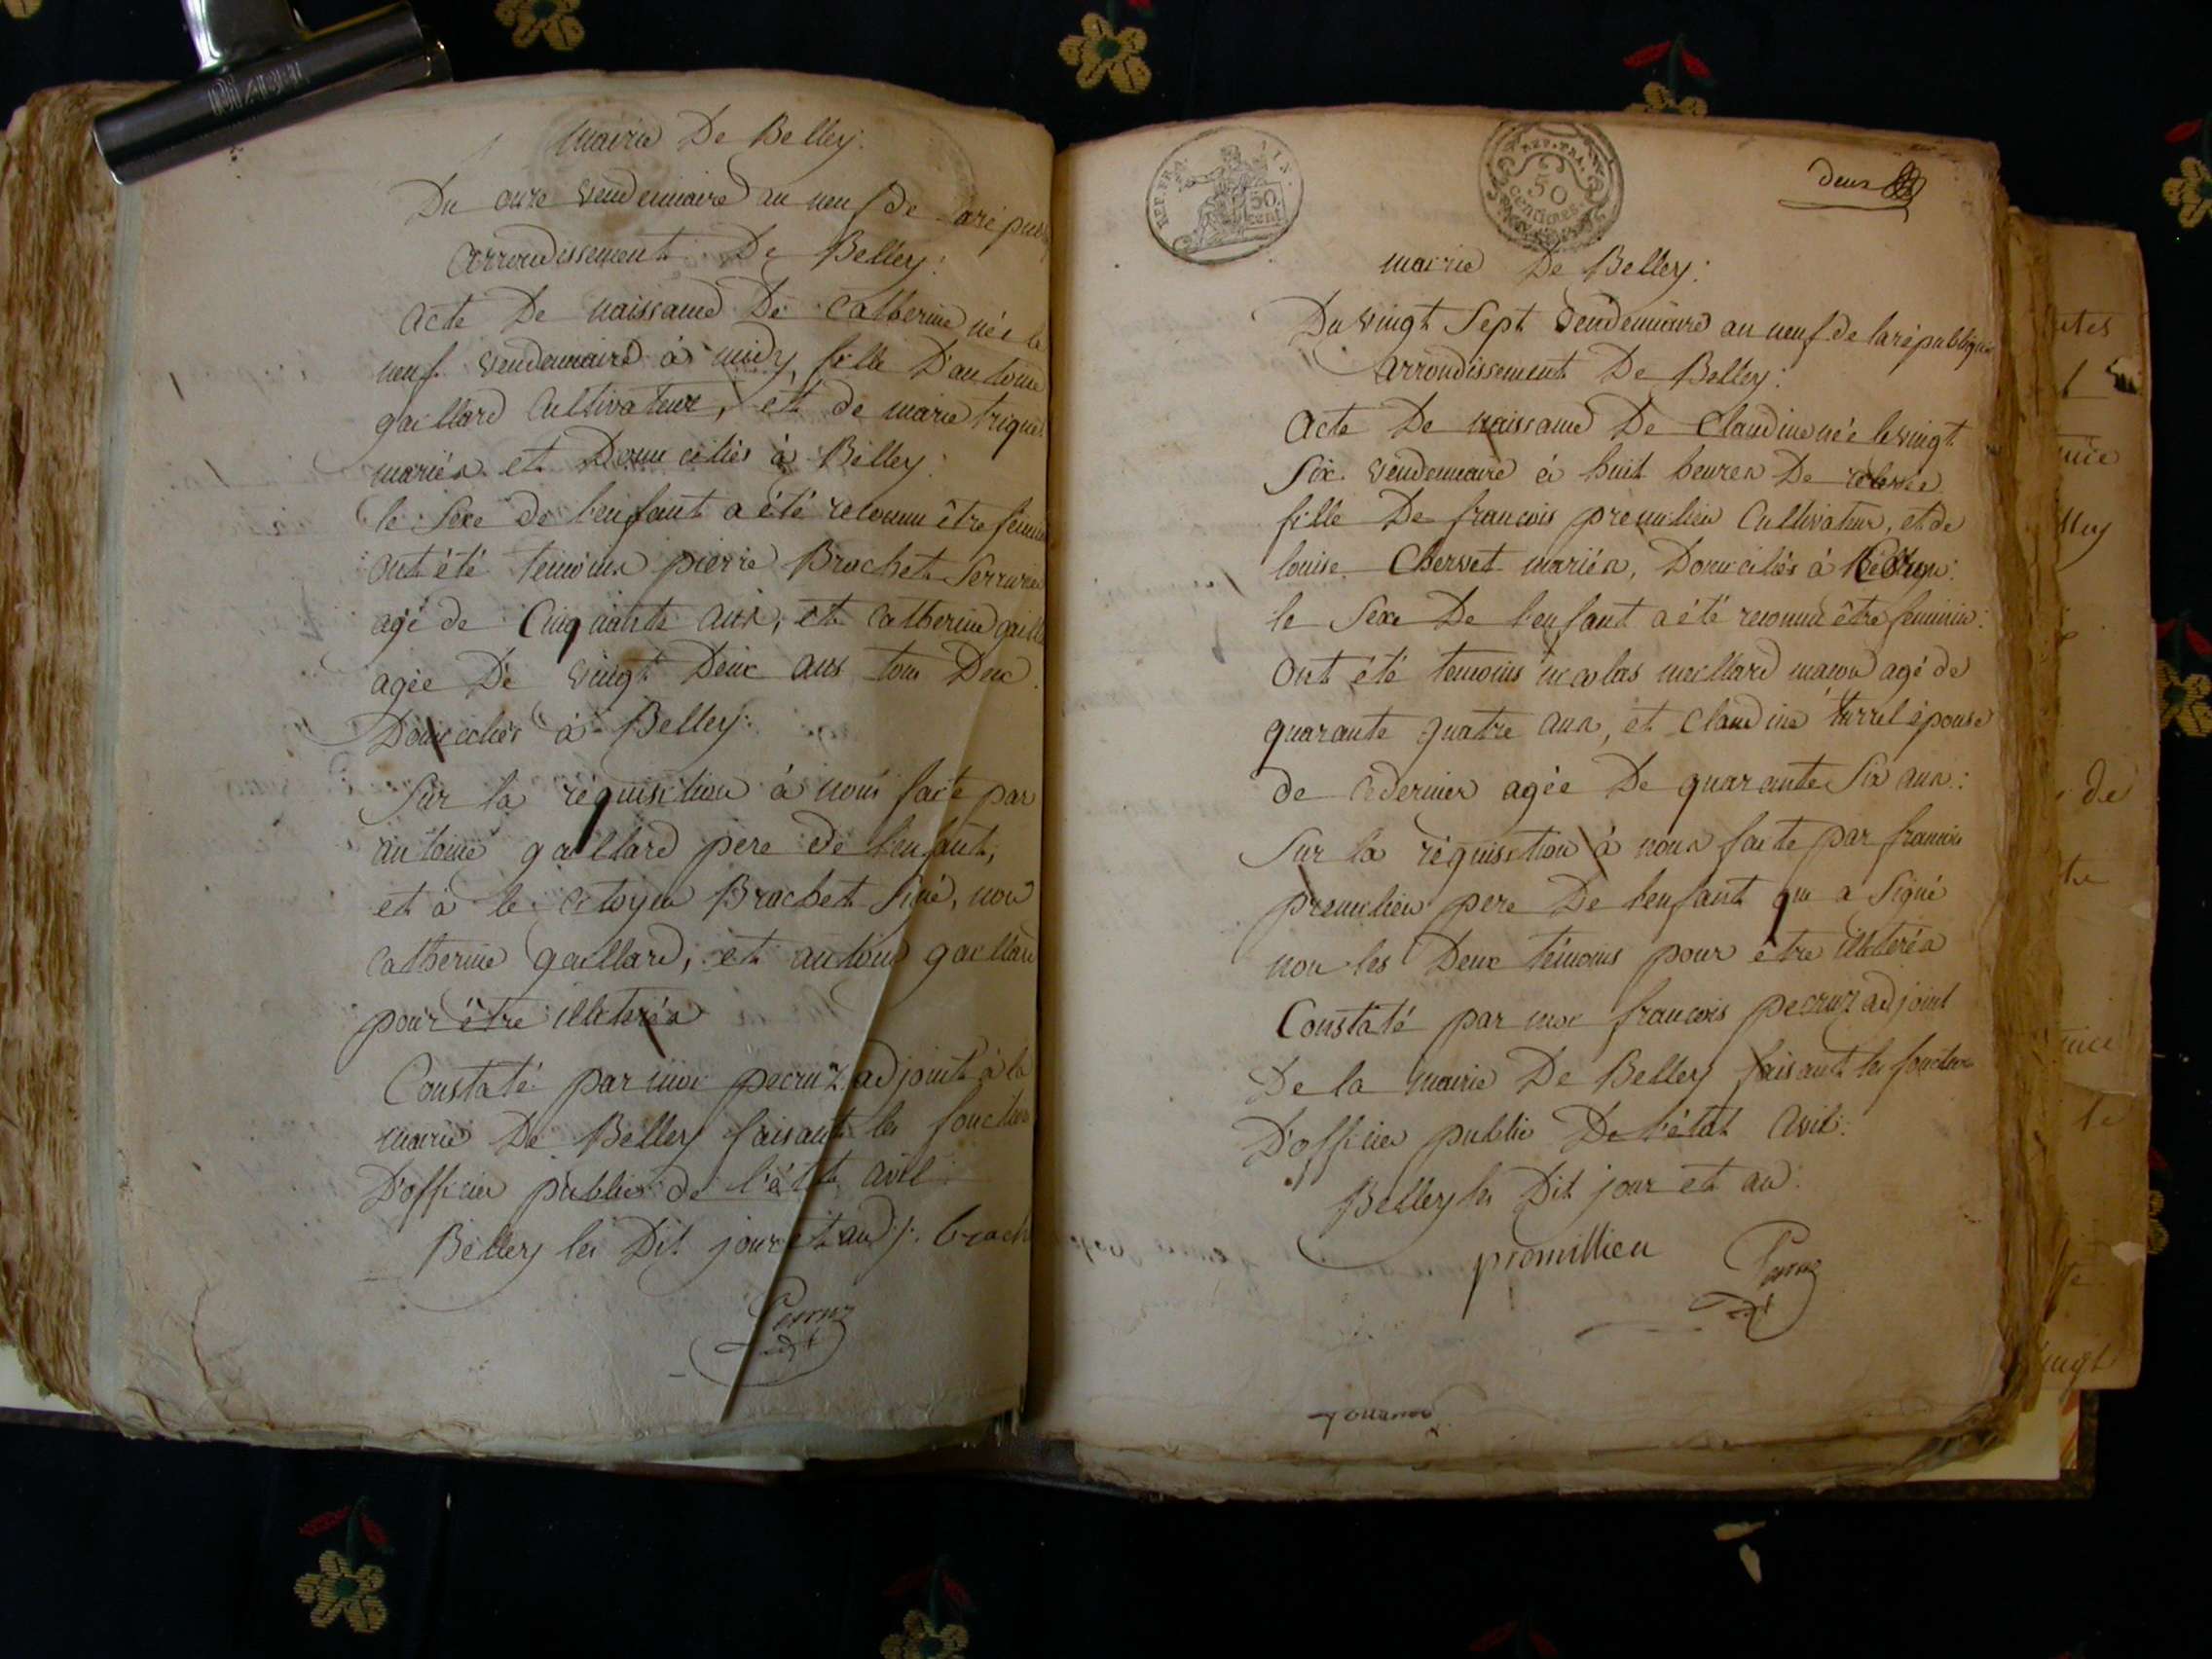 mairie De Belley.
Du onze vendemiaire an neuf de la répub
arrondissement De Belley.
acte De naissance De catherine née le
neuf vendemiaire à midy, fille D'antoine
gaillard Cultivateur, et de marie
mariés et Domiciliés à Belley.
le Sexe de l'enfant a été reconnu être
ont été temoins pierre Brochet Serrurier
agé de Cinquante ans, et catherine
agée De vingt Deux ans tous Deux
Domiciliés à Belley.
Sur la réquisition à nous faite par
antoine gaillard pere de l'enfant,
et à le citoyen Brochet Siné, non
catherine gaillard, et antoine gaillard
pour être illeterés
Constaté par moi pecruz adjoint à la
mairie De Belley faisant les
D'officier public de l'état civil
Belley les Dit jour et an
deux
REP. FRA.
AIN.
50 cent
REP. FRA.
50
centimes
mairie De Belley.
Du vingt Sept vendemiaire an neuf de la république
arrondissement De Belley.
acte De naissance De Claudine née le vingt
Six vendemiaire à huit heures De
fille De francois premilieu Cultivateur, et de
louise Chervet mariés, Domiciliés à
le Sexe De l'enfant a été reconnu être feminin.
ont été temoins nicolas maillard macon agé de
quarante quatre ans, et Claudine turrel épouse
de ce dernier agée De quarante Six ans.
Sur la réquisition à nous faite par francois
premilieu pere De l'enfant qui a Signé
non les Deux témoins pour être illeterés
Constaté par moi francois pecruz adjoint
De la mairie De Belley faisant les
D'officier public De l'état civil.
Belley les Dit jour et an.
promillieu